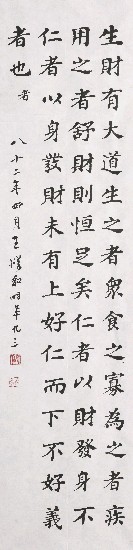 生財有大道生之者眾食之寡為之者疾
用之者舒財則恒足矣仁者以財發身不
仁者以身發財未有上好仁而下不好義
者也 者 八十二年四月王愷和時年九三